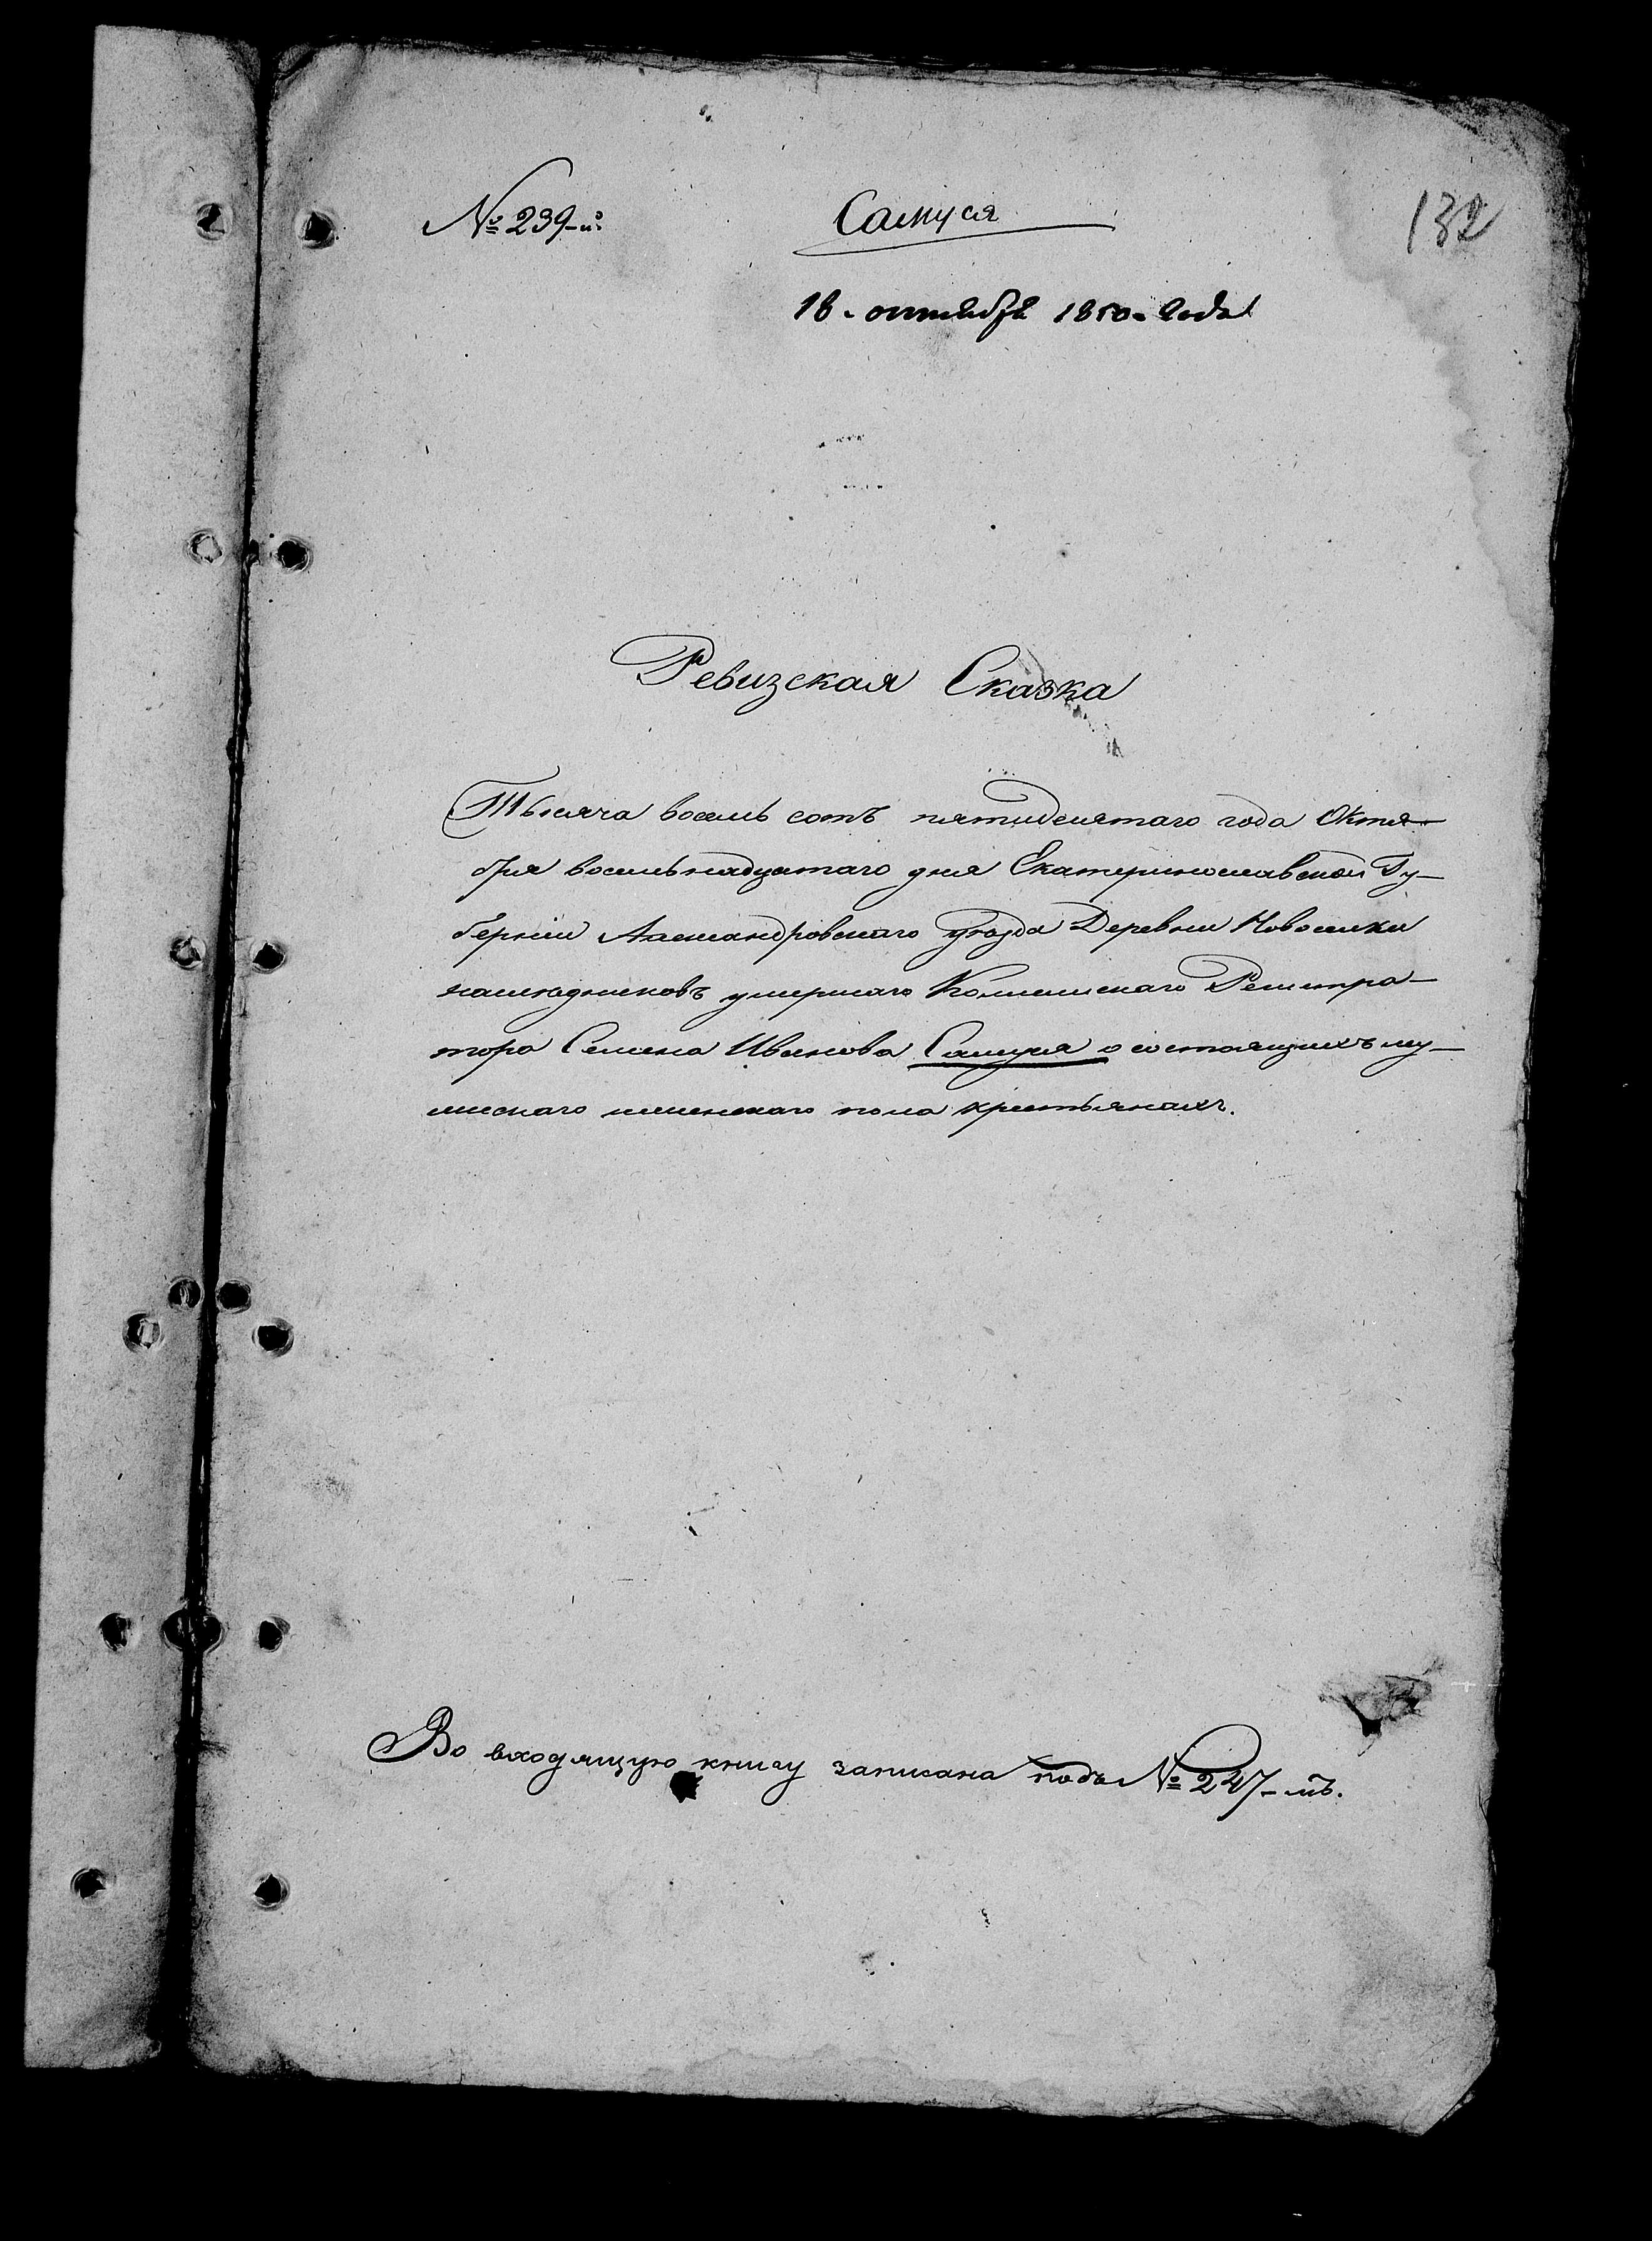 № 239-й.
Самуся
132
18. октября 1850. года
Ревизская Сказка
Тысяча восемь сотъ пятидесятаго года Октя-
бря восемьнадцатаго дня Екатеринославской Гу-
берніи Александровскаго уѣзда Деревни Новоселки
наслѣдниковъ умершаго Коллежскаго Регистра-
тора Семена Иванова Самуся о состоящихъ му-
жескаго женскаго пола крестьянахъ.
Во входящую книгу записана подъ № 247-мъ.